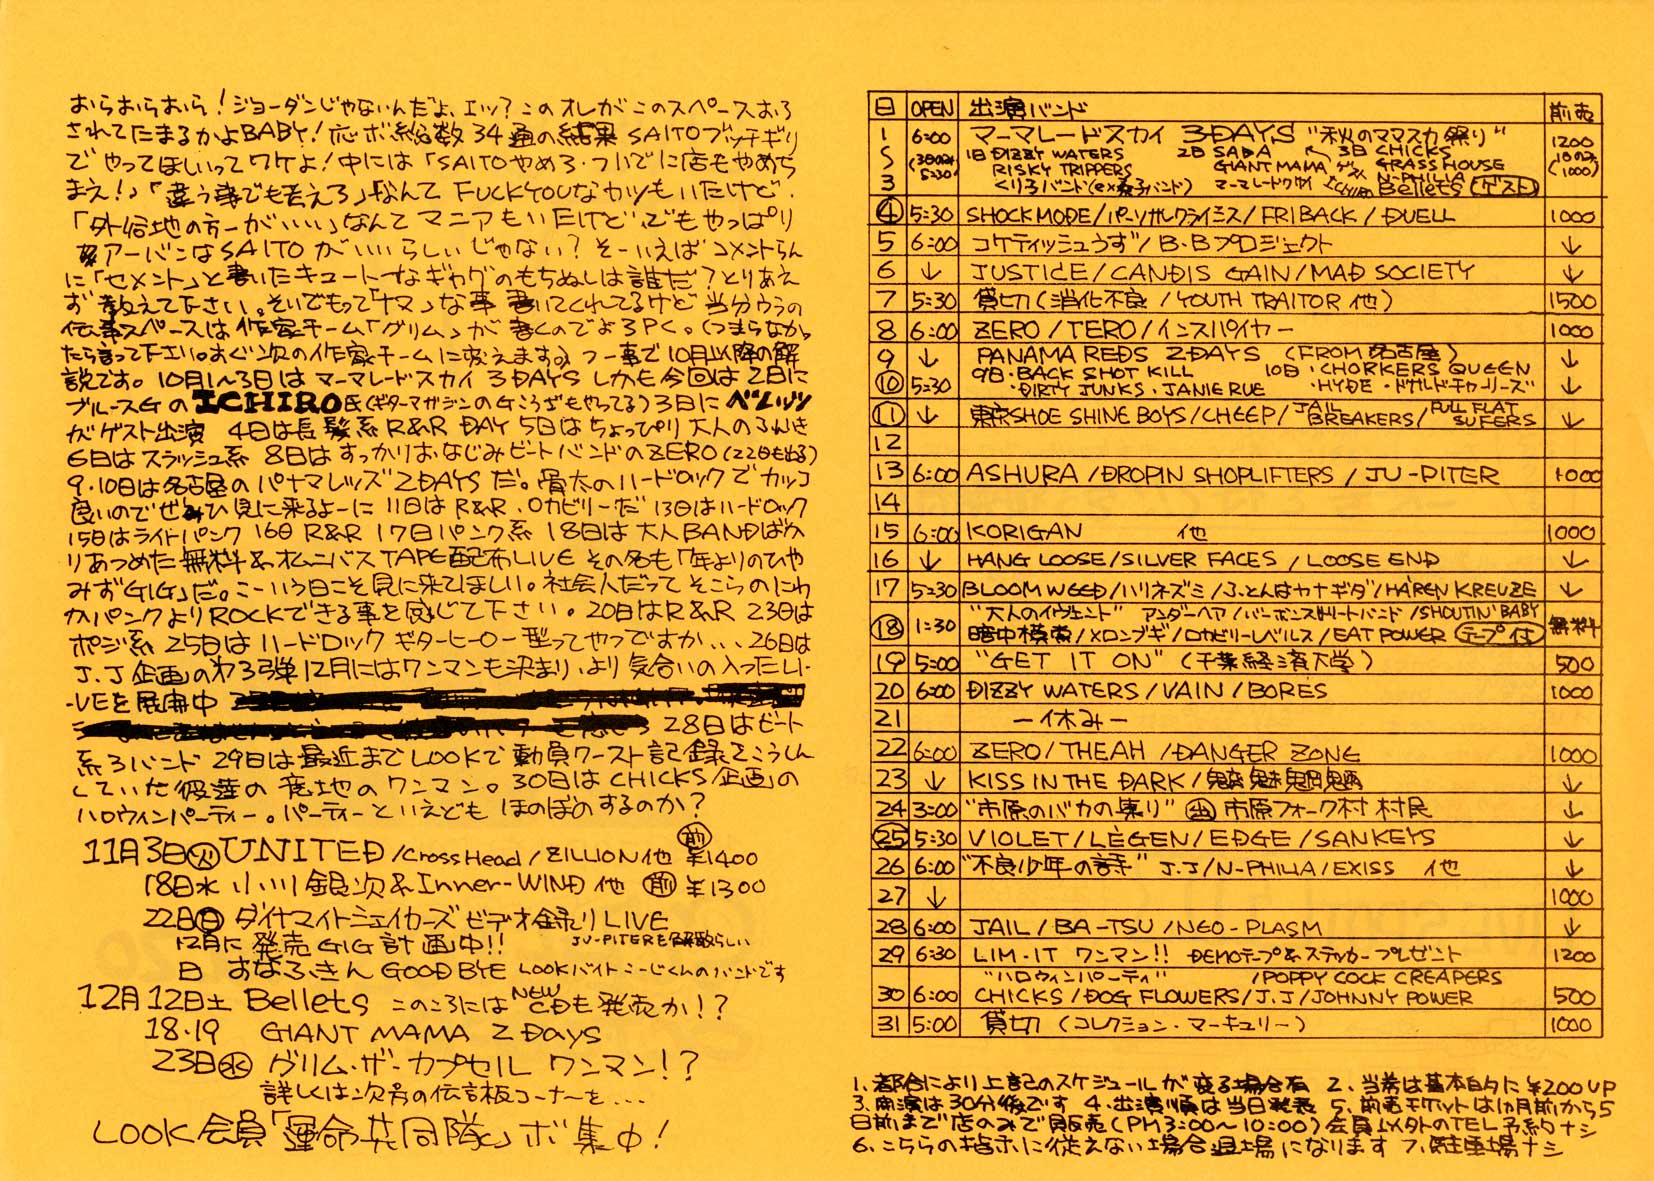 おらおらおら!ジョーダンじゃないんだよ、エッ?このオレがこのスペースおろ
されてたまるかよBABY!応ボ総数34通の結果SAITOブッチギリ
でやってほしいってワケよ!中には「SAITOやめろ・ついでに店もやめち
まえ!」「違う事でも考えろ」なんてFUCK YOUなヤツもいたけど.
「外俗地の方ーがいい」なんてマニアもいたけど、でもやっぱり
アーバンなSAITOがいいらしいじゃない?そーいえばコメントらん
に「セメント」と書いたキュートなギャグのもちぬしは誰だ?とりあえ
ず教えて下さい。そいでもって「ナマ」な事書いてくれてるけど当分ウラの
伝言スペースは作家チーム「グリム」が書くのでよろPC。(つまらなかっ
たら言って下さい。すぐ次の作家チームに変えます。)フ一事で10月以降の解
説です。10月1〜3日はマーマレードスカイ3DAYSしかも今回は2日に
ブルースGのICHIRO氏(ギターマガジンのGこうざもやってる)3日にベレッツ
がゲスト出演 4日は長髪系R&R DAY 5日はちょっぴり大人のふんいき
6日はスラッシュ系 8日はすっかりおなじみビートバンドのZERO(22日も出る)
9・10日は名古屋のパナマレッズ2DAYSだ。骨太のハードロックでカッコ
良いのでぜひ見に来るよーに 11日はR&R、ロカビリーだ 13日はハードロック
15日はライトパンク 16日R&R 17日パンク系 18日は大人BANDばか
りあつめた無料&オムニバスTAPE配布LIVE その名も「年よりのひや
みずGIG」だ。こーいう日こそ見に来てほしい。社会人だってそこらのにわ
かパンクよりROCKできる事を感じて下さい。20日はR&R 23日は
ポジ系 25日はハードロックギターヒーロー型ってやつですか、、、26日は
J.J企画の第3弾12月にはワンマンも決まり、より気合いの入ったLI-
-VEを展開中
28日はビート
系3バンド 29日は最近までLOOKで動員ワースト記録をこうしん
していた彼達の意地のワンマン。30日はCHICKS/企画の
ハロウィンパーティー。パーティーといえどもほのぼのするのか?
11月3日(火)UNITED/CrossHead/ZILLION他 (前)¥1400
18日水 小川銀次&Inner-WIND他 (前)¥1300
22日(日)ダイナマイトシェイカーズビデオ録りLIVE
12月に発売GIG計画中!! JU-PITERを解散らしい
日 おなふきん GOODBYE LOOKバイトこーじくんのバンドです
12月12日土 Bellets このころにはNEW CDも発売か!?
18・19 GIANT MAMA 2Days
23日(水) グリム・ザ・カプセル ワンマン!?
詳しくは次号の伝言板コーナーを...
LOOK会員「運命共同隊」ボ集中!
日 OPEN 出演バンド 前売
1 S 3 6:00(3日のみ5:30) マーマレードスカイ 3DAYS "秋のママスカ祭り" 1200(1日のみ1000)
1日DIZZY WATERS 2日SADA 3日CHICKS
RISKY TRIPPERS GIANT MAMA ゲスト GRASS HOUSE
くり3バンド(ex桑子バンド) マーマレードスカイ ICHIRO N-PHILIA Bellets(ゲスト)
4 5:30 SHOCK MODE/パーソナルクライミス/FRIBACK/DUELL 1000
5 6:00 コケティッシュうず/B・Bプロジェクト ↓
6 ↓ JUSTICE/CANDIS GAIN/MAD SOCIETY ↓
7 5:30 貸切(消化不良/YOUTH TRAITOR他) 1500
8 6:00 ZERO/TERO/インスパイヤー 1000
9 ↓ PANAMA REDS 2DAYS (FROM名古屋) ↓
9日・BACK SHOT KILL 10日・CHORKERS QUEEN
10 5:30 ・DIRTY JUNKS・JANIE RUE ・HYDE・ドナルドチャーリーズ" ↓
11 ↓ 東京SHOE SHINE BOYS/CHEEP/JAIL BREAKERS/FULL FLAT SUFERS ↓
12
13 6:00 ASHURA/DROPIN SHOPLIFTERS/JU-PITER 1000
14
15 6:00 KORIGAN 他 1000
16 ↓ HANG LOOSE/SILVER FACES/LOOSE END ↓
17 5:30 BLOOM WEED/ハリネズミ/ふとんはヤナギダ/HÄREN KREUZE ↓
18 1:30 "大人のイヴェント" アンダーヘア/バーボンストリートバンド/SHOUTIN' BABY 無料
暗中模索/メロンブギ/ロカビリーレベルス/EAT POWER(テープ付)
19 5:00 "GET IT ON"(千葉経済大学) 500
20 6:00 DIZZY WATERS/VAIN/BORES 1000
21 ー休みー
22 6:00 ZERO/THEAH/DANGER ZONE 1000
23 ↓ KISS IN THE DARK/魑魅魍魎 ↓
24 3:00 "市原のバカの集り" (出)市原フォーク村 村民 ↓
25 5:30 VIOLET/LÈGEN/EDGE/SANKEYS ↓
26 6:00 "不良少年の詩" J.J/N-PHILIA/EXISS 他 ↓
27 ↓ 1000
28 6:00 JAIL/BA-TSU/NEO-PLASM ↓
29 6:30 LIM-IT ワンマン!! DEMOテープ&ステッカープレゼント 1200
"ハロウィンパーティ" /POPPY COCK CREAPERS
30 6:00 CHICKS/DOG FLOWERS/J.J/JOHNNY POWER 500
31 5:00 貸切(コレクション・マーキュリー) 1000
1、都合により上記のスケジュールが変る場合有 2、当券は基本的に¥200UP
3、開演は30分後です 4、出演順は当日発表 5、前売チケットは1ヵ月前から5
日前まで店のみで販売(PM3:00〜10:00)会員以外のTEL予約ナシ
6、こちらの指示に従えない場合退場になります 7、駐車場ナシ